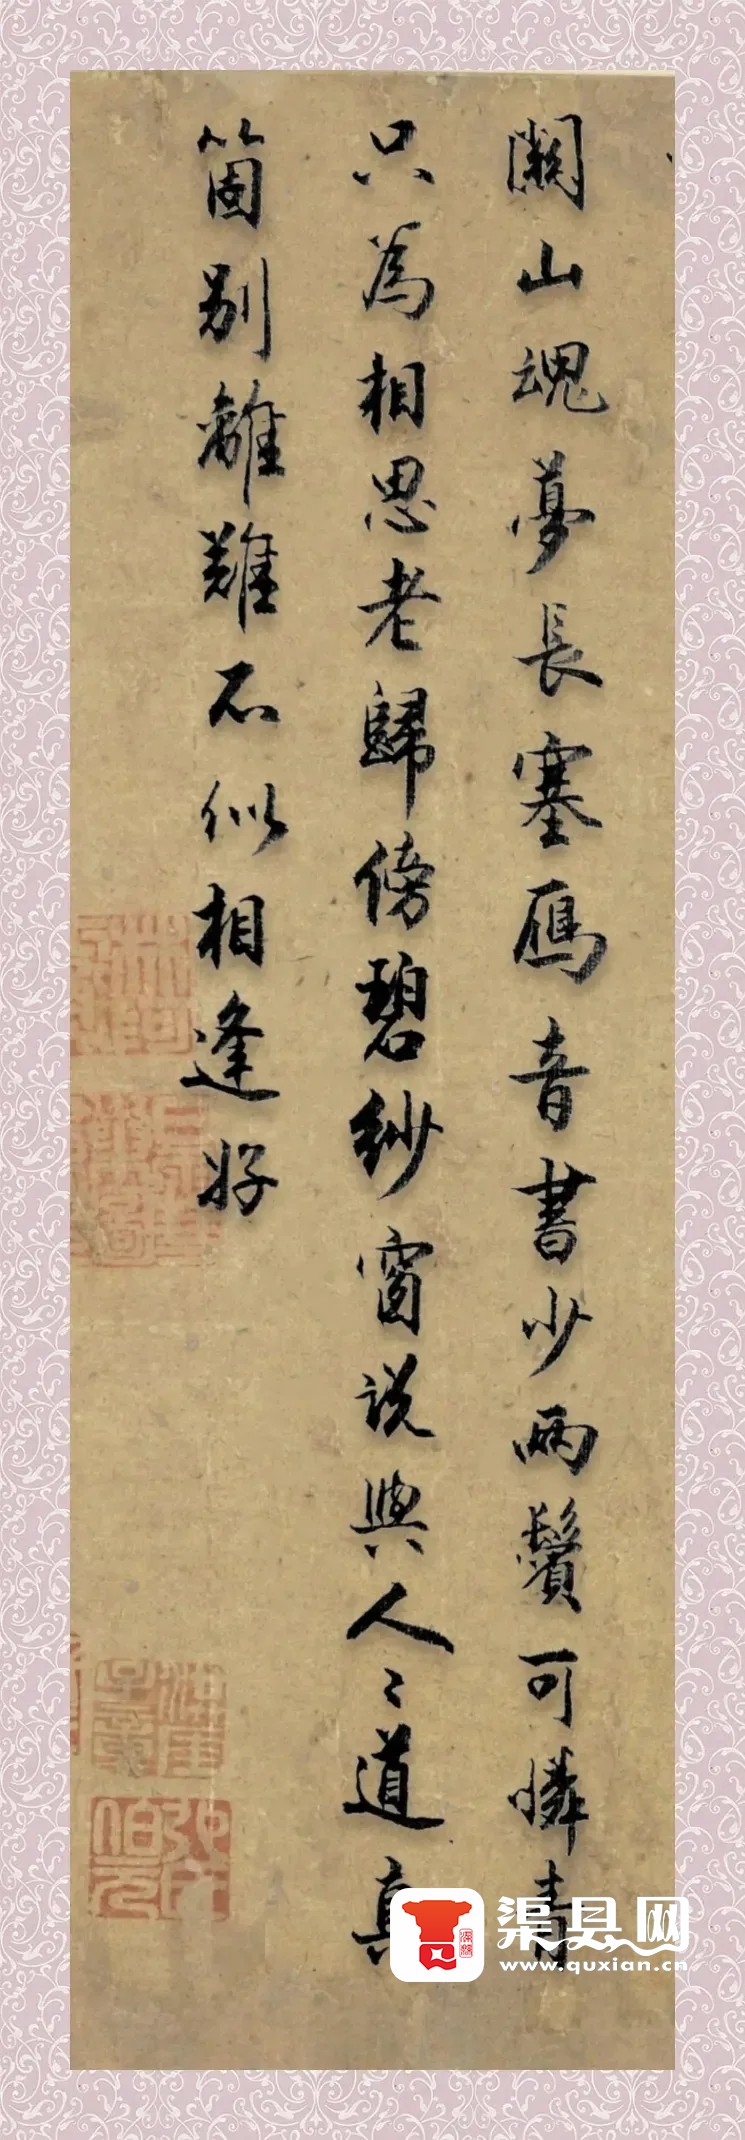 關山魂夢長塞鴈音書少兩鬢可憐青
只為相思老歸傍碧紗窗說與人〻道真
箇別離難不似相逢好
渠县网
www.quxian.cn